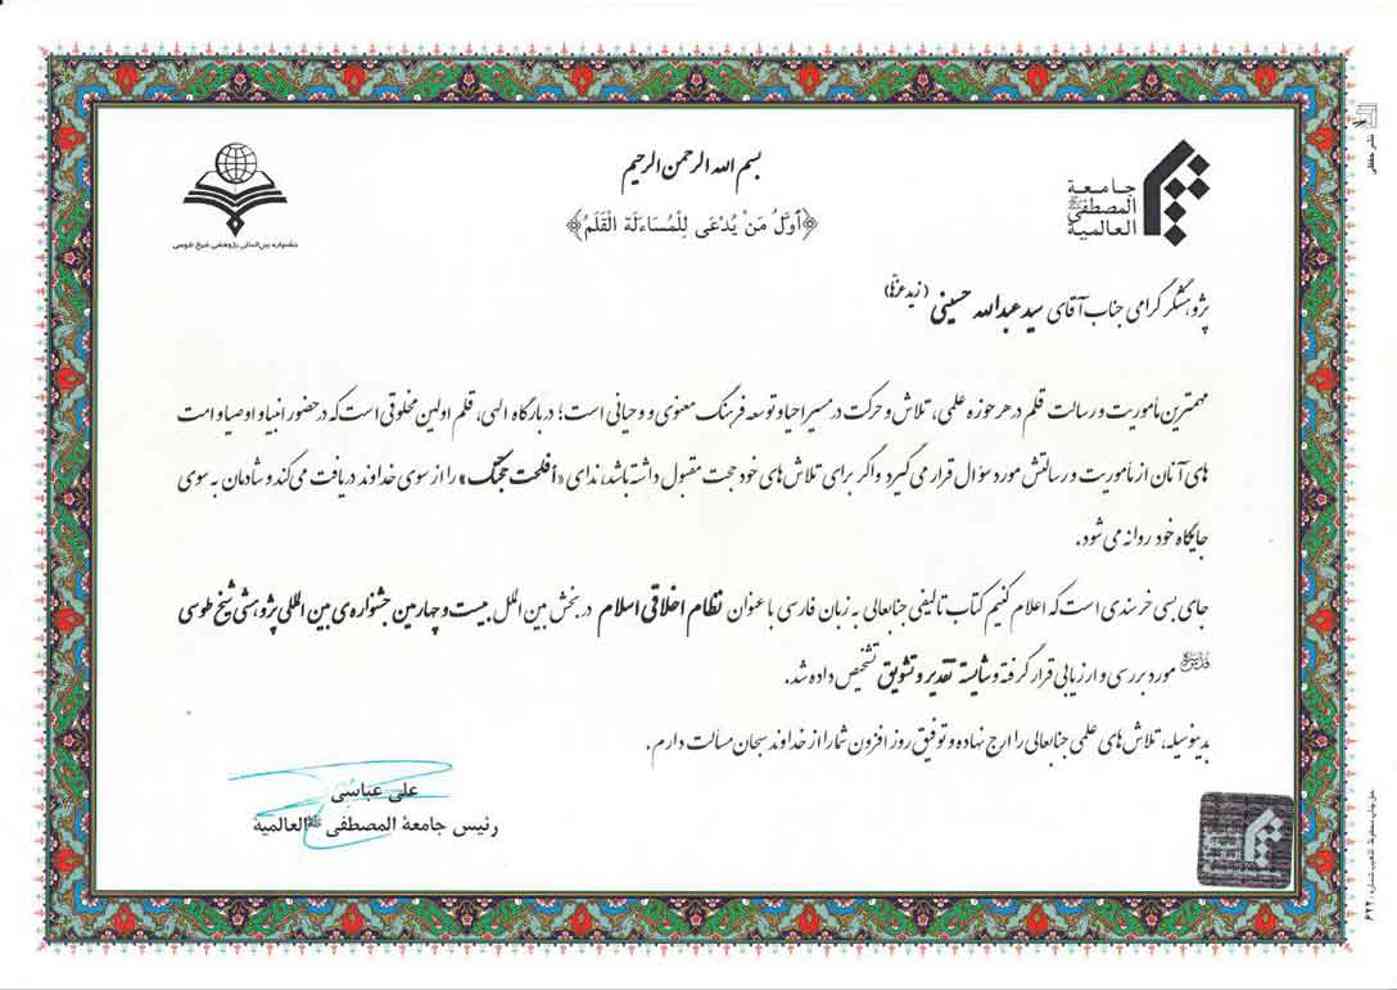 بسم الله الرحمن الرحیم
﴿أَوَّلُ مَنْ يُدْعَى لِلْمُسَاءَلَة الْقَلَمُ﴾
جامعة
المصطفی
العالمیة
جشنواره بین‌المللی پژوهشی شیخ طوسی
پژوهشگر گرامی جناب آقای سید عبدالله حسینی (زید عزه)
مهمترین مأموریت و رسالت قلم در هر حوزه علمی، تلاش و حرکت در مسیر احیا و توسعه فرهنگ معنوی و وحیانی است؛ در بارگاه الهی، قلم اولین مخلوقی است که در حضور انبیا و اوصیا و امت
های آنان از مأموریت و رسالتش مورد سؤال قرار می گیرد و اگر برای تلاش های خود حجت مقبول داشته باشد، ندای «أفلحت حجتک» را از سوی خداوند دریافت می کند و شادمان به سوی
جایگاه خود روانه می شود.
جای بسی خرسندی است که اعلام کنیم کتاب تالیفی جنابعالی به زبان فارسی با عنوان نظام اخلاقی اسلام در بخش بین الملل بیست و چهارمین جشنواره‌ی بین المللی پژوهشی شیخ طوسی
مورد بررسی و ارزیابی قرار گرفته و شایسته تقدیر و تشویق تشخیص داده شد.
بدینوسیله، تلاش های علمی جنابعالی را ارج نهاده و توفیق روز افزون شما را از خداوند سبحان مسألت دارم.
علی عباسی
رئیس جامعة المصطفی ﷺ العالمیة